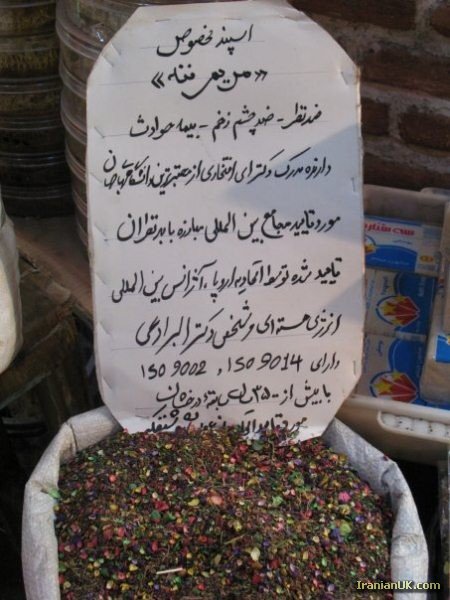 اسپند مخصوص
«من یمی ننه»
ضد نظر - ضد چشم زخم - بیمه حوادث
دارنده مدرک دکترای افتخاری از معتبرترین دانشگاههای جهان
مورد تایید مجامع بین المللی مبارزه با بد نظران
تایید شده توسط اتحادیه اروپا، آژانس بین المللی
انرژی هسته ای و شخص دکتر البرادعی
دارای ISO 9014 و ISO 9002
با بیش از ۳۵۰۰ سال سابقه درخشان
مورد تایید
IranianUK.com